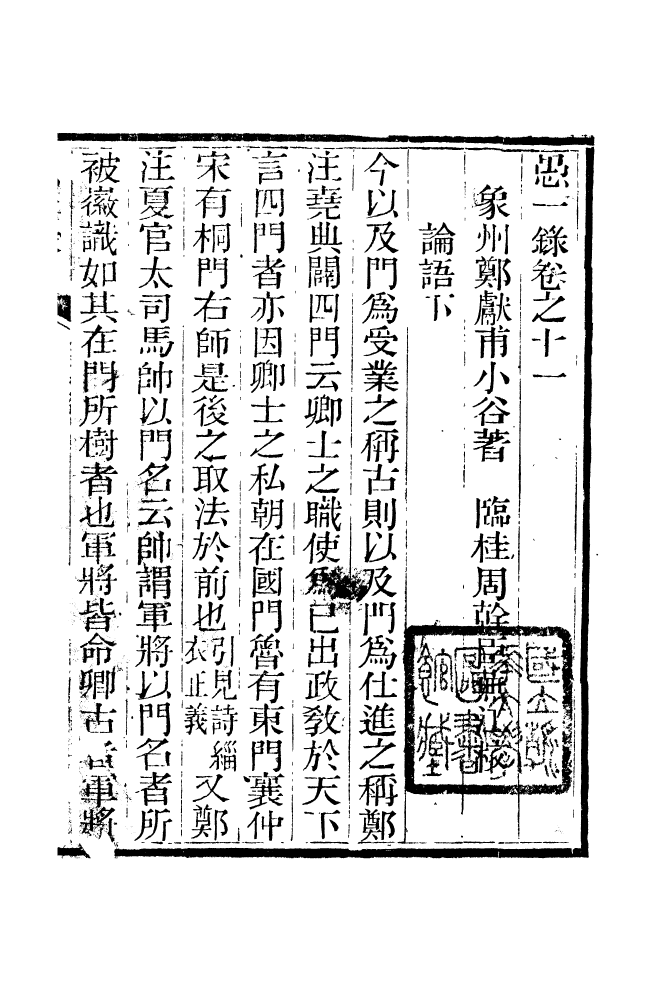 愚一錄卷之十一
象州鄭獻甫小谷著　臨桂周幹臣
論語下
今以及門爲受業之稱古則以及門爲仕進之稱鄭
注堯典闢四門云卿士之職使爲己出政教於天下
言四門者亦因卿士之私朝在國門魯有東門襄仲
宋有桐門右師是後之取法於前也引見詩緇衣正義又鄭
注夏官太司馬帥以門名云帥謂軍將以門名者所
被徽識如其在門所樹者也軍將皆命卿古者軍將